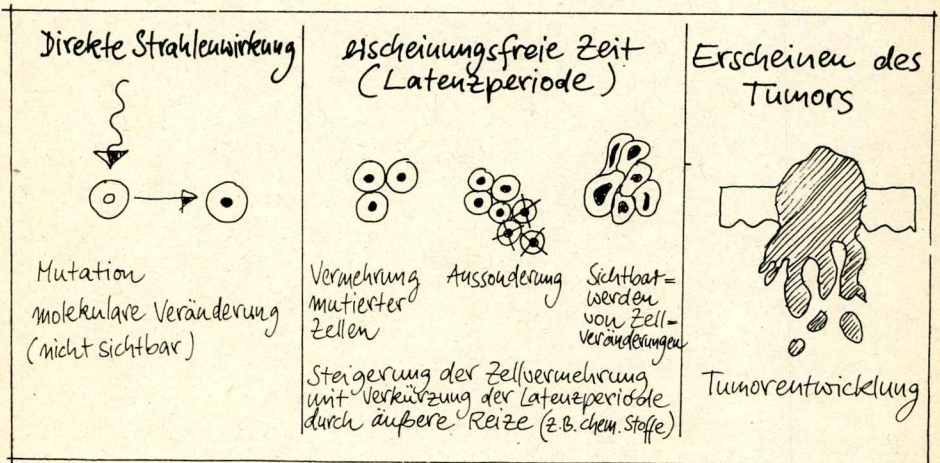 Direkte Strahlenwirkung
Mutation
molekulare Veränderung
(nicht sichtbar)
erscheinungsfreie Zeit
(Latenzperiode)
Vermehrung
mutierter
Zellen
Aussonderung
Sichtbar=
werden
von Zell=
veränderungen
Steigerung der Zellvermehrung
mit Verkürzung der Latenzperiode
durch äußere Reize (z.B. chem. Stoffe)
Erscheinen des
Tumors
Tumorentwicklung